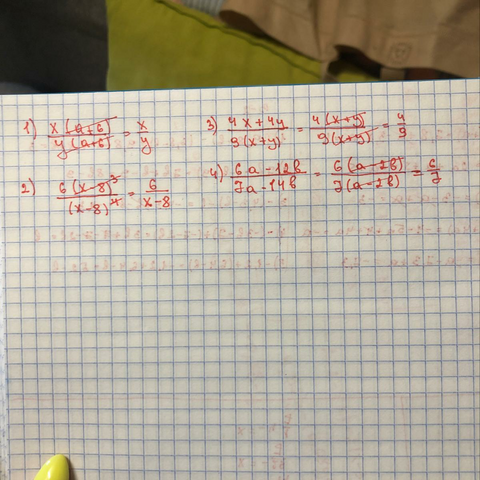 1) x(a+b)/y(a+b) = x/y
2) 6(x-8)³/(x-8)⁴ = 6/x-8
3) 4x+4y/9(x+y) = 4(x+y)/9(x+y) = 4/9
4) 6a-12b/7a-14b = 6(a-2b)/7(a-2b) = 6/7